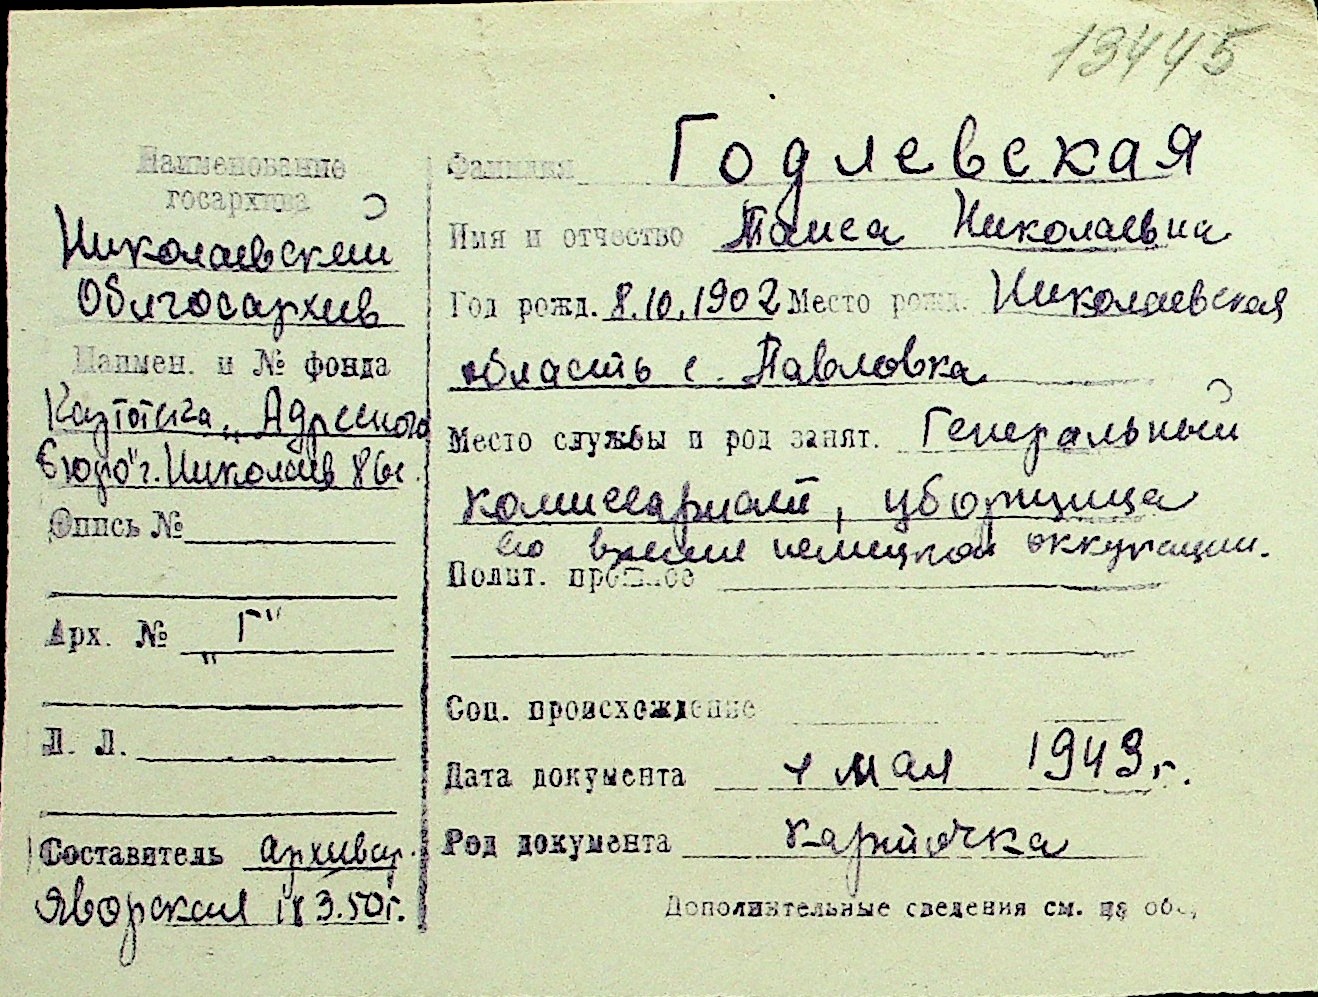 13445
Наименование
госархива
Николаевский
Облгосархив
Наимен. и № фонда
Картотека „Адресного
бюро" г. Николаев 86г.
Опись №
Арх. № „Г"
Л. Л.
Составитель архивар.
Яворская 18 3.50г.
Фамилия Годлевская
Имя и отчество Таиса Николаевна
Год рожд. 8.10.1902 Место рожд. Николаевская
область с. Павловка
Место службы и род занят. Генеральный
комиссариат, уборщица
во время немецкой оккупации.
Полит. прошлое
Соц. происхождение
Дата документа 4 мая 1943 г.
Род документа карточка
Дополнительные сведения см. на об.,